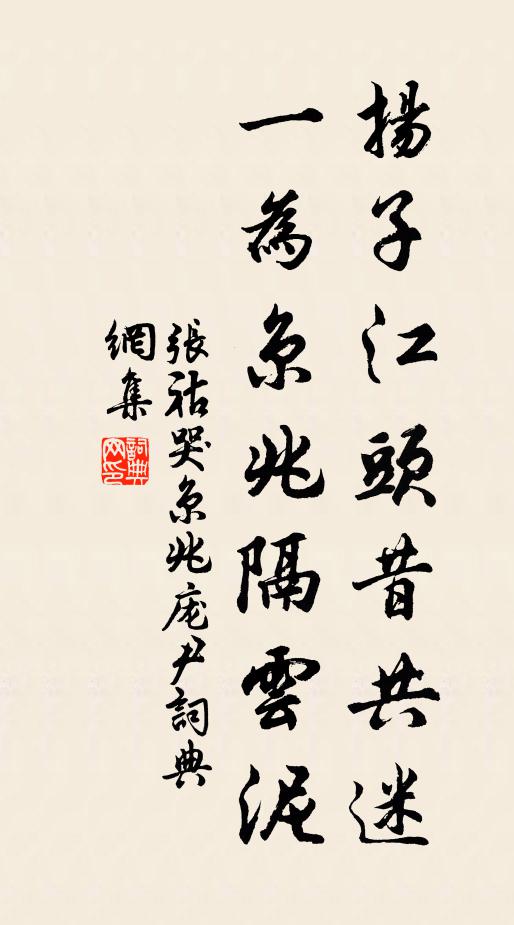 揚子江頭昔共迷
一為京兆隔雲泥
張祜哭京兆庞尹詞典
網集
詞典網印